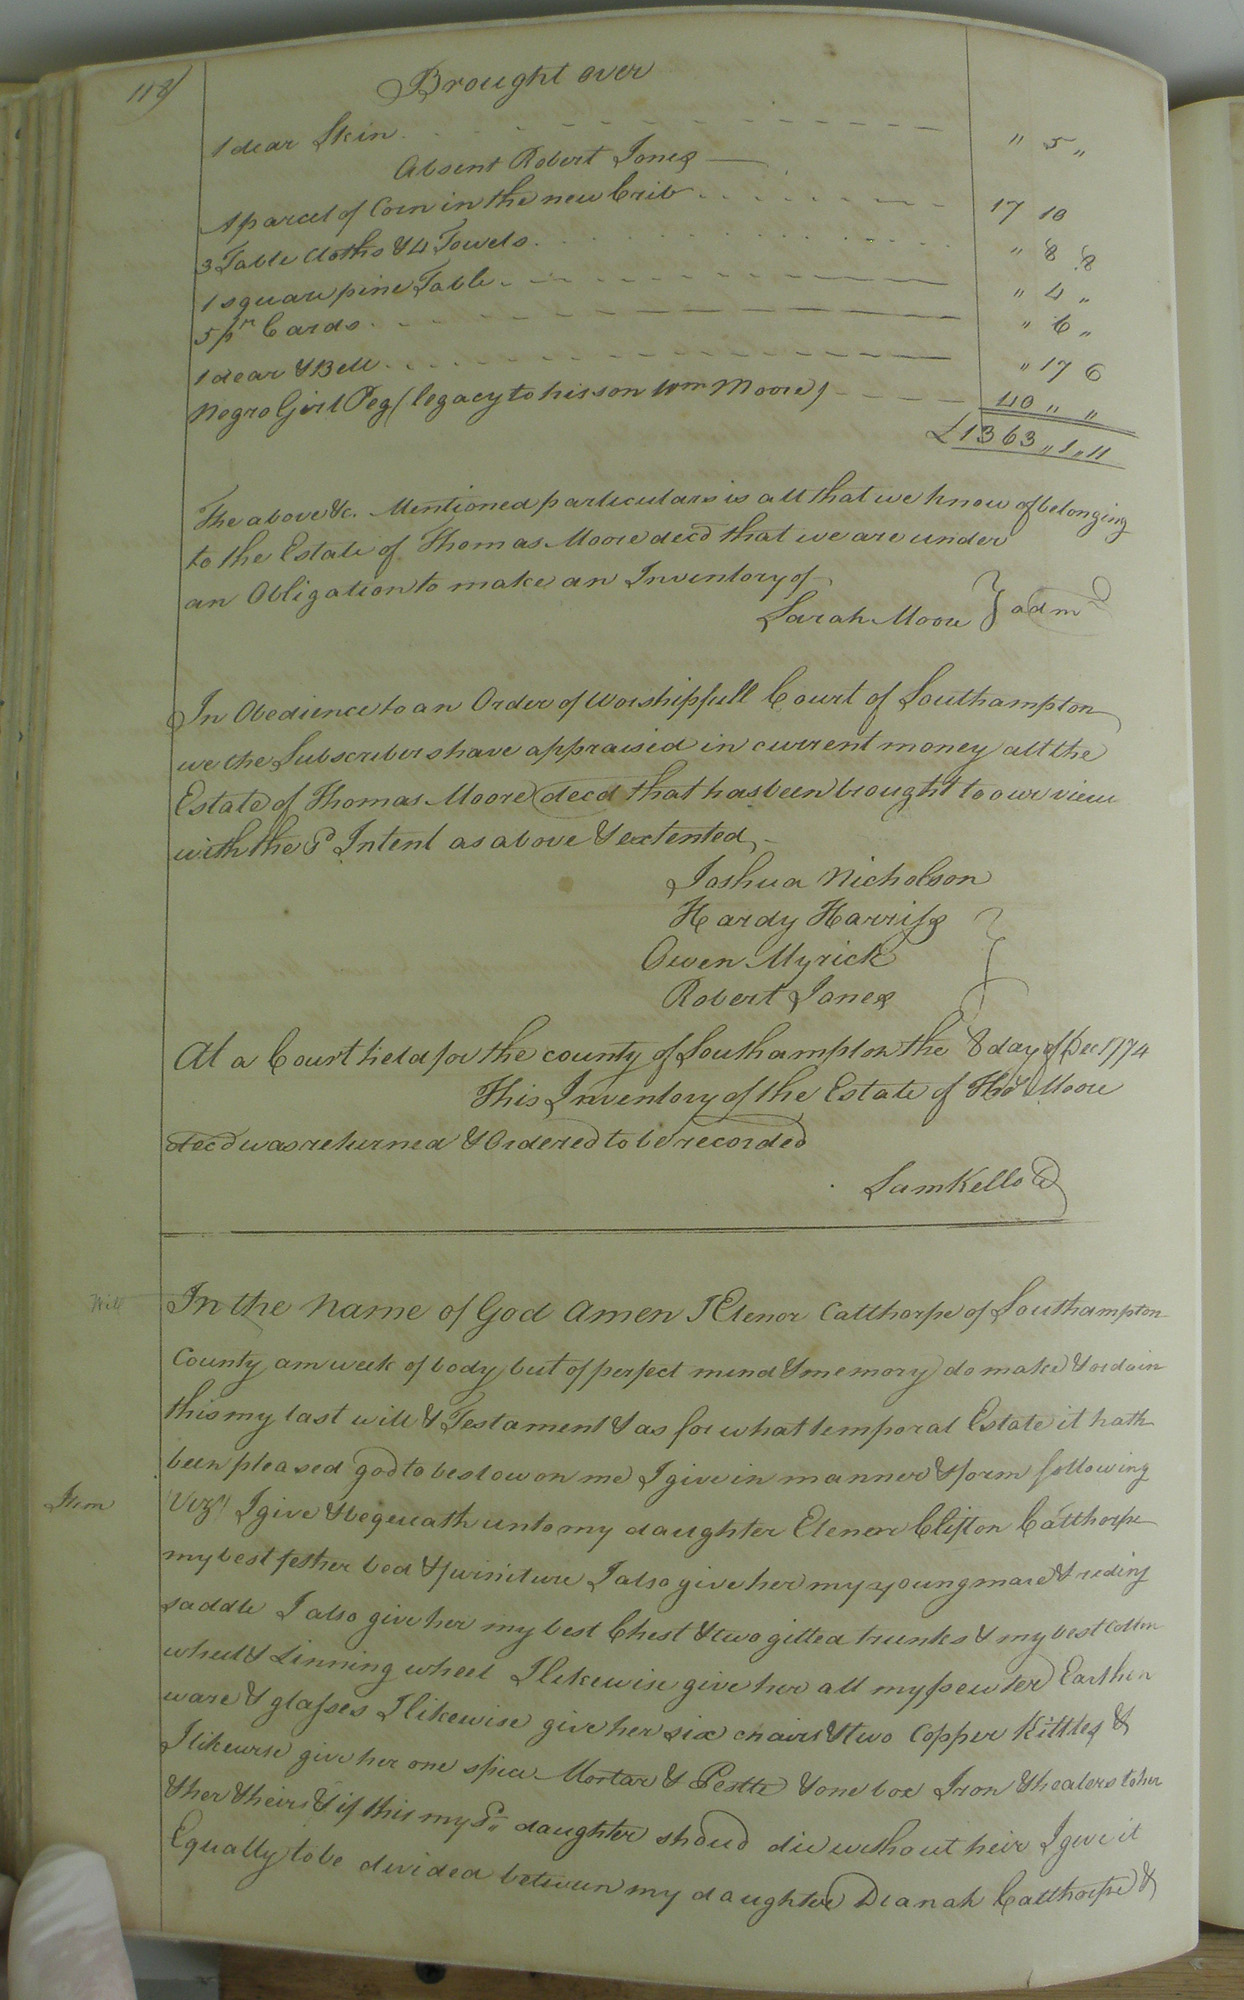 118)
Brought over
1 dear Skin " 5 "
Absent Robert Jones
A parcel of Corn in the new Crib 17 10
3 Table Cloths & 4 Towels " 8 8
1 square pine Table " 4 "
5 pr Cards " 6 "
1 dear & Bell " 17 6
Negro Girl Peg (legacy to his son Wm Moore) 40 " "
£1363 " 1 " 11
The above &c. Mentioned particulars is all that we know of belonging
to the Estate of Thomas Moore decd that we are under
an Obligation to make an Inventory of
Sarah Moore } adm
In Obedience to an Order of Worshipfull Court of Southampton
we the Subscribers have appraised in current money all the
Estate of Thomas Moore decd that has been brought to our view
with the P Intent as above & extented
Joshua Nicholson
Hardy Harriss
Owen Myrick
Robert Jones }
At a Court held for the county of Southampton the 8 day of Dec 1774
This Inventory of the Estate of Thos Moore
decd was returned & Ordered to be recorded
Sam Kello
Will
In the Name of God Amen I Elenor Calthorpe of Southampton
County am week of body but of perfect mind & memory do make & ordain
this my last will & Testament & as for what temporal Estate it hath
been pleased god to bestow on me I give in manner & form following
Item
(Viz) I give & bequeath unto my daughter Elenor Clifton Calthorpe
my best fether bed & furniture I also give her my young mare & riding
saddle I also give her my best Chest & two gilted trunks & my best cotton
wheel & Linning wheel I likewise give her all my pewter Earthen
ware & glasses I likewise give her six chairs & two Copper Kittles &
I likewise give her one spice Mortar & Pestle & one box Iron & heaters to her
& her & heirs & if this my sd daughter shoud die without heir I give it
Equally to be divided between my daughter Dianah Calthorpe &